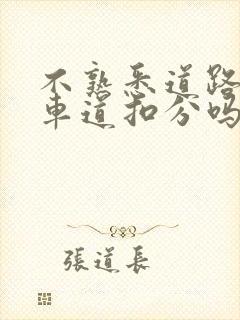 不熟悉道路
車道扣分吗
張道長